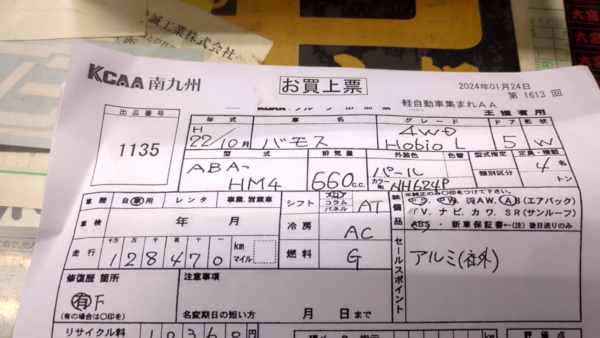 誠工業株式会社
KCAA 南九州
お買上票
2024年01月24日
第 1613 回
軽自動車集まれAA
主催者用
出品番号
1135
年式 車名 グレード ドア 形状
H22/10月 バモス 4WD Hobio L 5 W
型式 排気量 外装色 色替 型式指定 定員・積載
ABA-HM4 660cc パール カラーNo. NH624P 類別区分 4名 トン
車歴 自家用 レンタ 事業、営業車
シフト フロア コラム パネル AT
装備品
※純正のみ○印をつけて下さい。
PS. PW. 革. AW. A (エアバック)
TV. ナビ. カワ. SR(サンルーフ)
ABS. 新車保証書←(注)後日送りのみ
車検 年 月
冷房 AC
走行 十万 万 千 百 十 128470 km マイル
燃料 G
セールスポイント
アルミ(社外)
修復歴 箇所
有 F
(有の場合は○印を)
注意事項
名変期日の短い方 月 日まで
リサイクル料 10360円
評価点